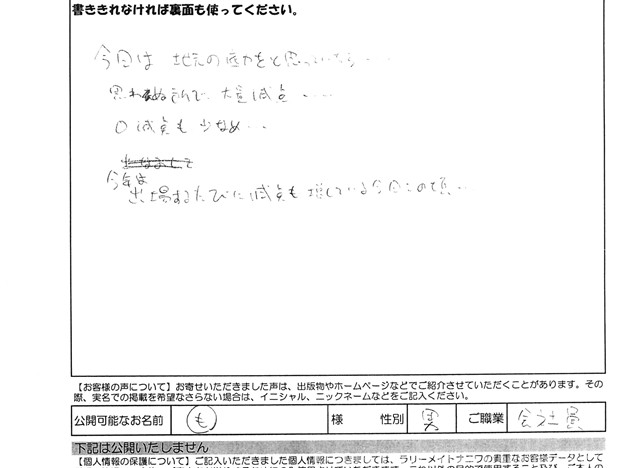 書ききれなければ裏面も使ってください。
今回は 地元の底力をと思っていたら・・・
思わぬ所で、大量減点・・・・
0減点も少なめ・・
今年は
出場するたびに減点も増している今日この頃・・
【お客様の声について】お寄せいただきました声は、出版物やホームページなどでご紹介させていただくことがあります。その
際、実名での掲載を希望なさらない場合は、イニシャル、ニックネームなどをご記入ください。
公開可能なお名前 も 様 性別 男 ご職業 会社員
下記は公開いたしません
【個人情報の保護について】ご記入いただきました個人情報につきましては、ラリーメイトナニワの貴重なお客様データとして